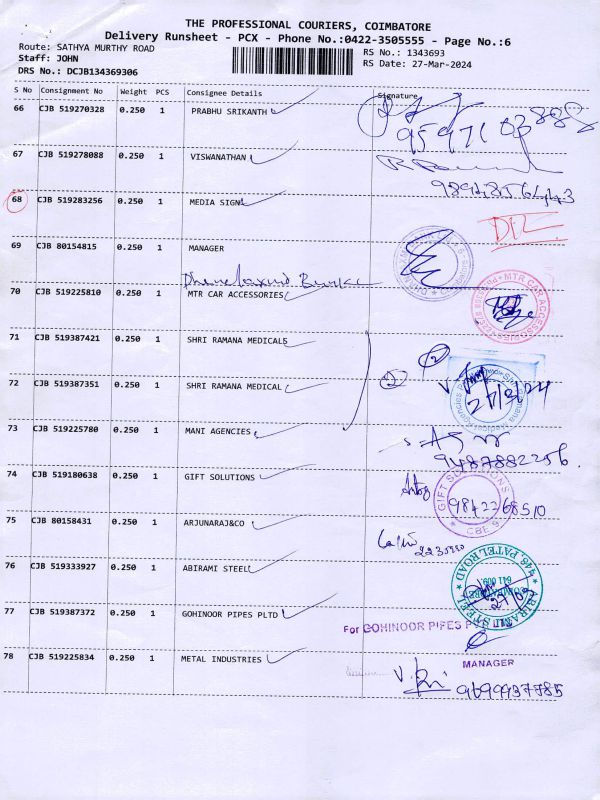 THE PROFESSIONAL COURIERS, COIMBATORE
Delivery Runsheet - PCX - Phone No.:0422-3505555 - Page No.:6
Route: SATHYA MURTHY ROAD
RS No.: 1343693
Staff: JOHN
RS Date: 27-Mar-2024
DRS No.: DCJB134369306
S No Consignment No Weight PCS Consignee Details Signature
66 CJB 519270328 0.250 1 PRABHU SRIKANTH
67 CJB 519278088 0.250 1 VISWANATHAN
68 CJB 519283256 0.250 1 MEDIA SIGN
69 CJB 80154815 0.250 1 MANAGER
70 CJB 519225810 0.250 1 MTR CAR ACCESSORIES
MTR CAR ACCESSORIES
71 CJB 519387421 0.250 1 SHRI RAMANA MEDICALS
2
72 CJB 519387351 0.250 1 SHRI RAMANA MEDICAL
2
27/3/24
73 CJB 519225780 0.250 1 MANI AGENCIES
9487882256.
74 CJB 519180638 0.250 1 GIFT SOLUTIONS
GIFT SOLUTIONS
9842268510
CBE 9
75 CJB 80158431 0.250 1 ARJUNARAJ&CO
76 CJB 519333927 0.250 1 ABIRAMI STEEL
446, PATEL ROAD
ABIRAMI STEEL
641 009
77 CJB 519387372 0.250 1 GOHINOOR PIPES PLTD
For GOHINOOR PIPES P
MANAGER
78 CJB 519225834 0.250 1 METAL INDUSTRIES
9699937785